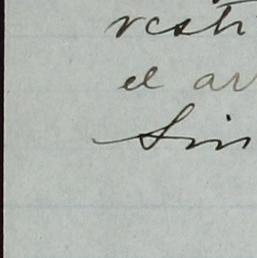 resti
el ar
Sin